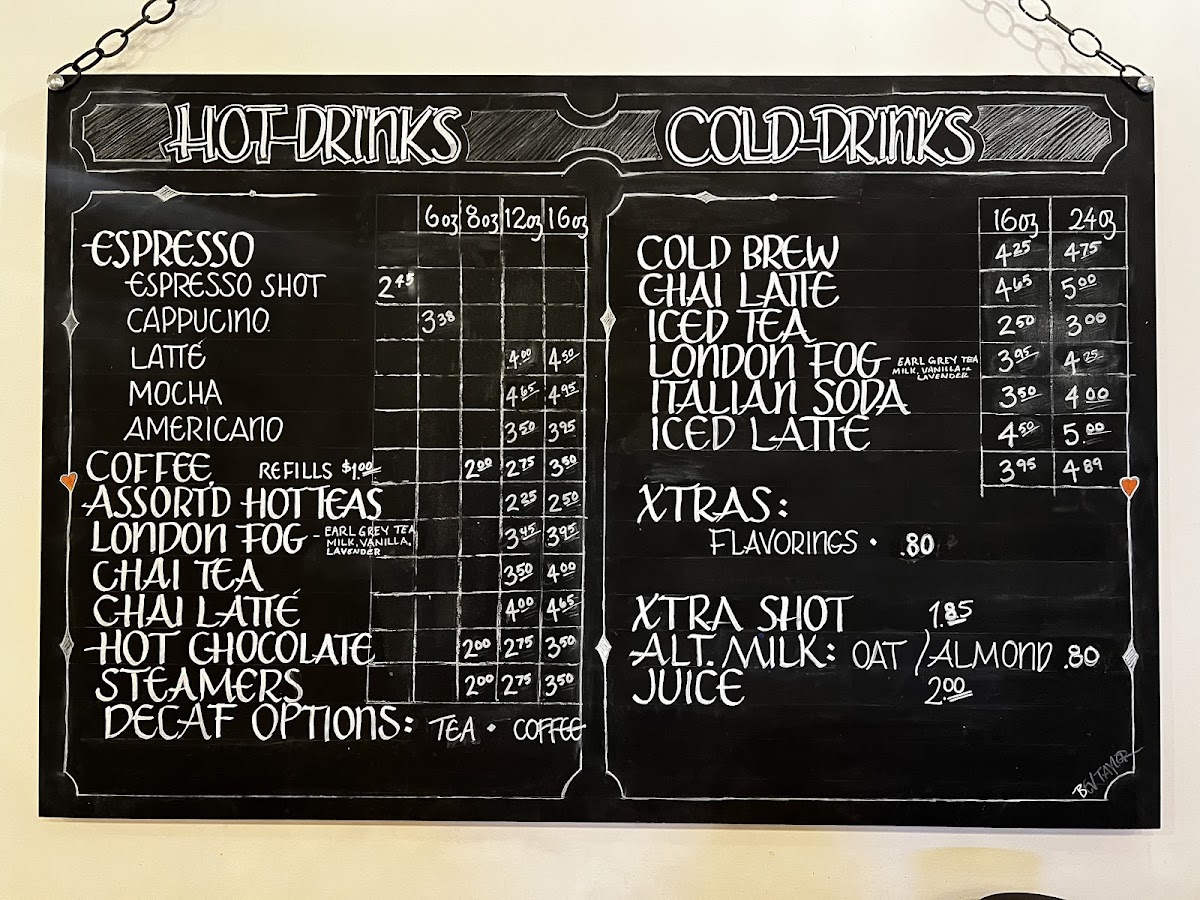 HOT DRINKS
6oz 8oz 12oz 16oz
ESPRESSO
ESPRESSO SHOT 2.45
CAPPUCINO 3.38
LATTE 4.00 4.50
MOCHA 4.65 4.95
AMERICANO 3.50 3.95
COFFEE REFILLS $1.00 2.00 2.75 3.50
ASSORT'D HOT TEAS 2.25 2.50
LONDON FOG - EARL GREY TEA 3.45 3.95
MILK, VANILLA,
LAVENDER
CHAI TEA 3.50 4.00
CHAI LATTE 4.00 4.65
HOT CHOCOLATE 2.00 2.75 3.50
STEAMERS 2.00 2.75 3.50
DECAF OPTIONS: TEA • COFFEE
COLD DRINKS
16oz 24oz
COLD BREW 4.25 4.75
CHAI LATTE 4.65 5.00
ICED TEA 2.50 3.00
LONDON FOG EARL GREY TEA 3.95 4.25
MILK, VANILLA or
LAVENDER
ITALIAN SODA 3.50 4.00
ICED LATTE 4.50 5.00
3.95 4.89
XTRAS:
FLAVORINGS • .80
XTRA SHOT 1.85
ALT. MILK: OAT / ALMOND .80
JUICE 2.00
BEV TAYLOR